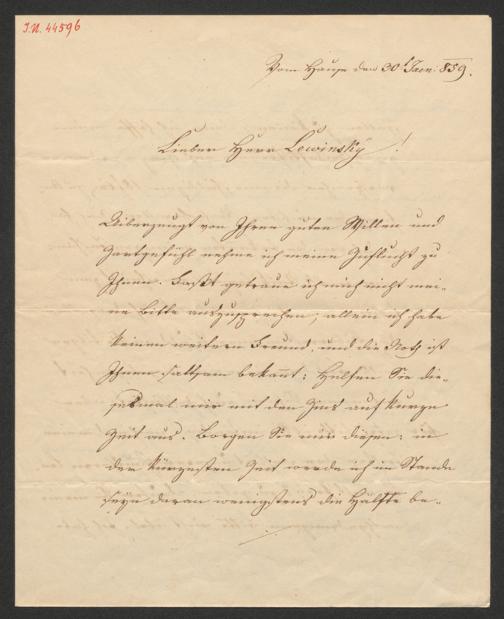 J.N. 44596
Vom Hause den 30t Jaen: 859.
Lieber Herr Lewinsky!
Uiberzeugt von Ihren guten Willen und
Zartgefühl nehme ich meine Zuflucht zu
Ihnen. Fast getraue ich mich nicht mei-
ne Bitte auszusprechen; allein ich habe
keinen weitern Freund, und die Noth ist
Ihnen sattsam bekannt: Helfen Sie die-
sesmal mir mit den Zins auf kurze
Zeit aus. Borgen Sie mir diesen: in
der kürzesten Zeit werde ich im Stande
seyn daran wenigstens die Hälfte be-